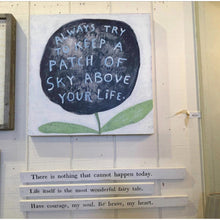 ALWAYS TRY
TO KEEP A
PATCH OF
SKY ABOVE
YOUR LIFE.
There is nothing that cannot happen today.
Life itself is the most wonderful fairy tale.
Have courage, my soul. Be brave, my heart.